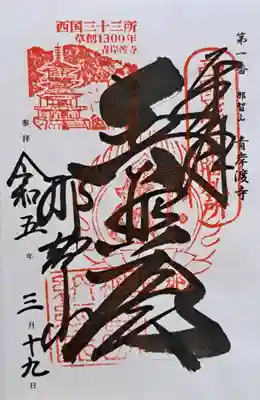 第一番 那智山 青岸渡寺
奉拝
普照殿
那智山
参拝 令和五年三月十九日
西国三十三所
草創1300年
青岸渡寺